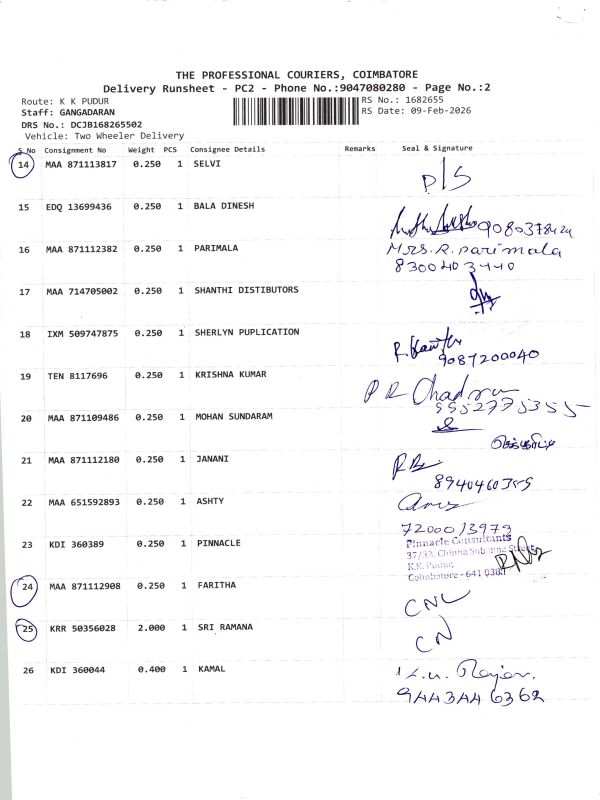 THE PROFESSIONAL COURIERS, COIMBATORE
Delivery Runsheet - PC2 - Phone No.:9047080280 - Page No.:2
Route: K K PUDUR
RS No.: 1682655
Staff: GANGADARAN
RS Date: 09-Feb-2026
DRS No.: DCJB168265502
Vehicle: Two Wheeler Delivery
S No Consignment No Weight PCS Consignee Details Remarks Seal & Signature
14 MAA 871113817 0.250 1 SELVI
D/S
15 EDQ 13699436 0.250 1 BALA DINESH
16 MAA 871112382 0.250 1 PARIMALA Mrs. R. parimala
8300403440
17 MAA 714705002 0.250 1 SHANTHI DISTIBUTORS
18 IXM 509747875 0.250 1 SHERLYN PUPLICATION
9087200040
19 TEN 8117696 0.250 1 KRISHNA KUMAR
9952775355
20 MAA 871109486 0.250 1 MOHAN SUNDARAM
21 MAA 871112180 0.250 1 JANANI
22 MAA 651592893 0.250 1 ASHTY
72000 13979
23 KDI 360389 0.250 1 PINNACLE Pinnacle Consultants
K.K. Pudur,
Coimbatore - 641 038
24 MAA 871112908 0.250 1 FARITHA
CNL
25 KRR 50356028 2.000 1 SRI RAMANA
CN
26 KDI 360044 0.400 1 KAMAL
9443446362